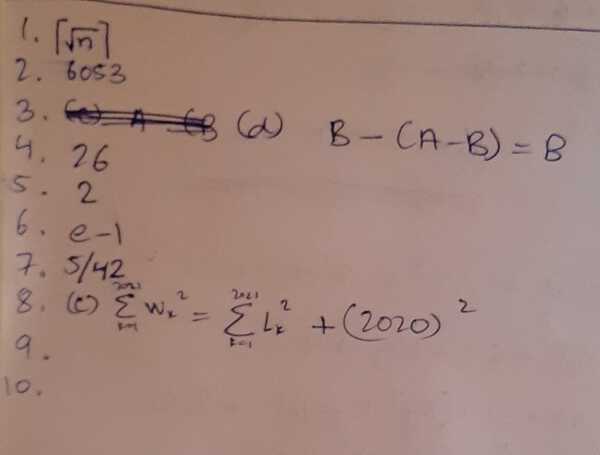 1. ⌈√n⌉
2. 6053
3. (d) B - (A - B) = B
4. 26
5. 2
6. e - 1
7. 5/42
8. (c) ∑_{k=1}^{2021} W_k^2 = ∑_{k=1}^{2021} L_k^2 + (2020)^2
9.
10.